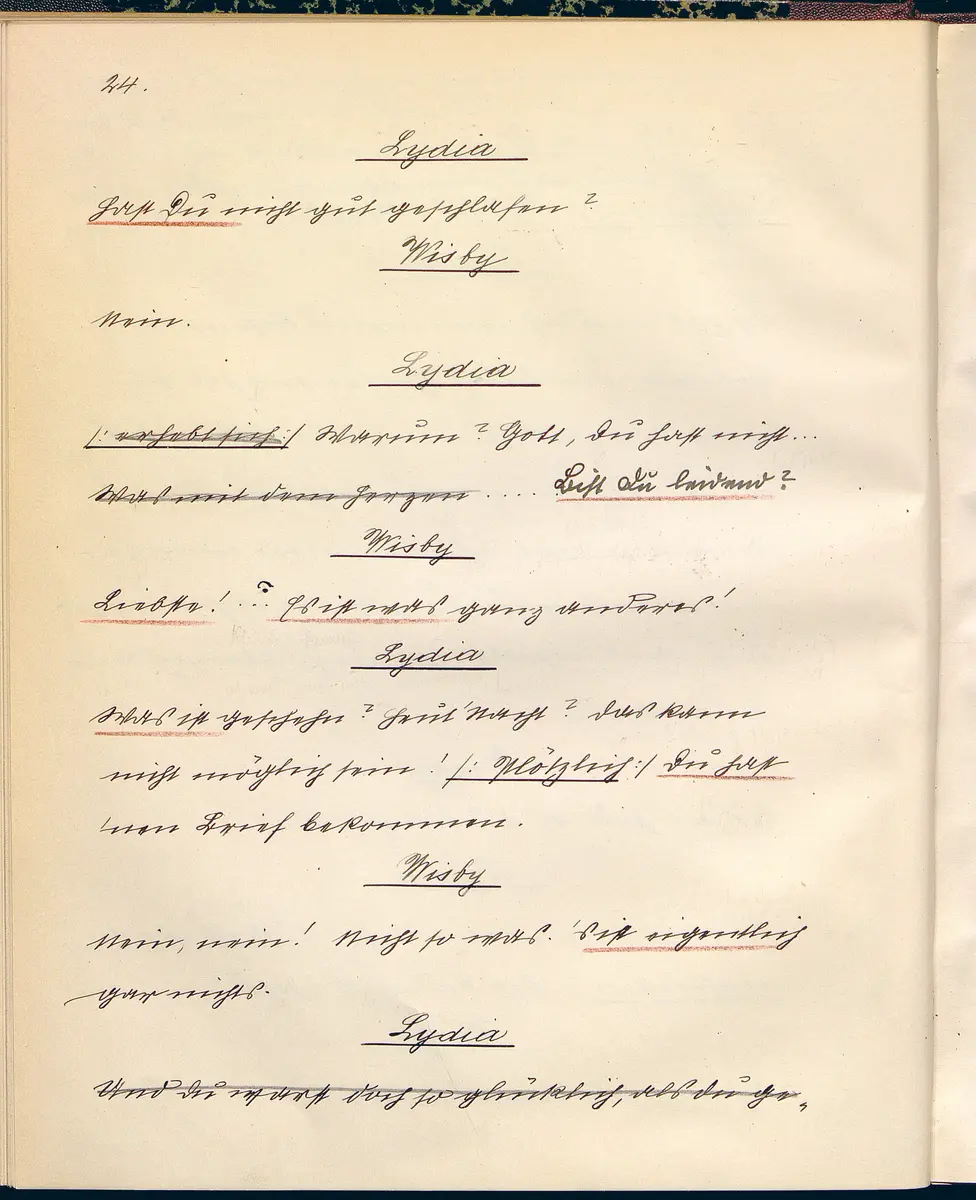 24.
Lydia
Hast Du nicht gut geschlafen?
Wisby
Nein.
Lydia
/: erhebt sich :/ Warum? Gott, Du hast nicht...
Was mit dem Herzen .... Bist Du leidend?
Wisby
Liebste! ...? Es ist was ganz anderes!
Lydia
Was ist geschehn? Heut' Nacht? Das kann
nicht möglich sein! /: Plötzlich :/ Du hast
'nen Brief bekommen.
Wisby
Nein, nein! Nicht so was. 's ist eigentlich
gar nichts.
Lydia
Und du warst doch so glücklich, als du ge-